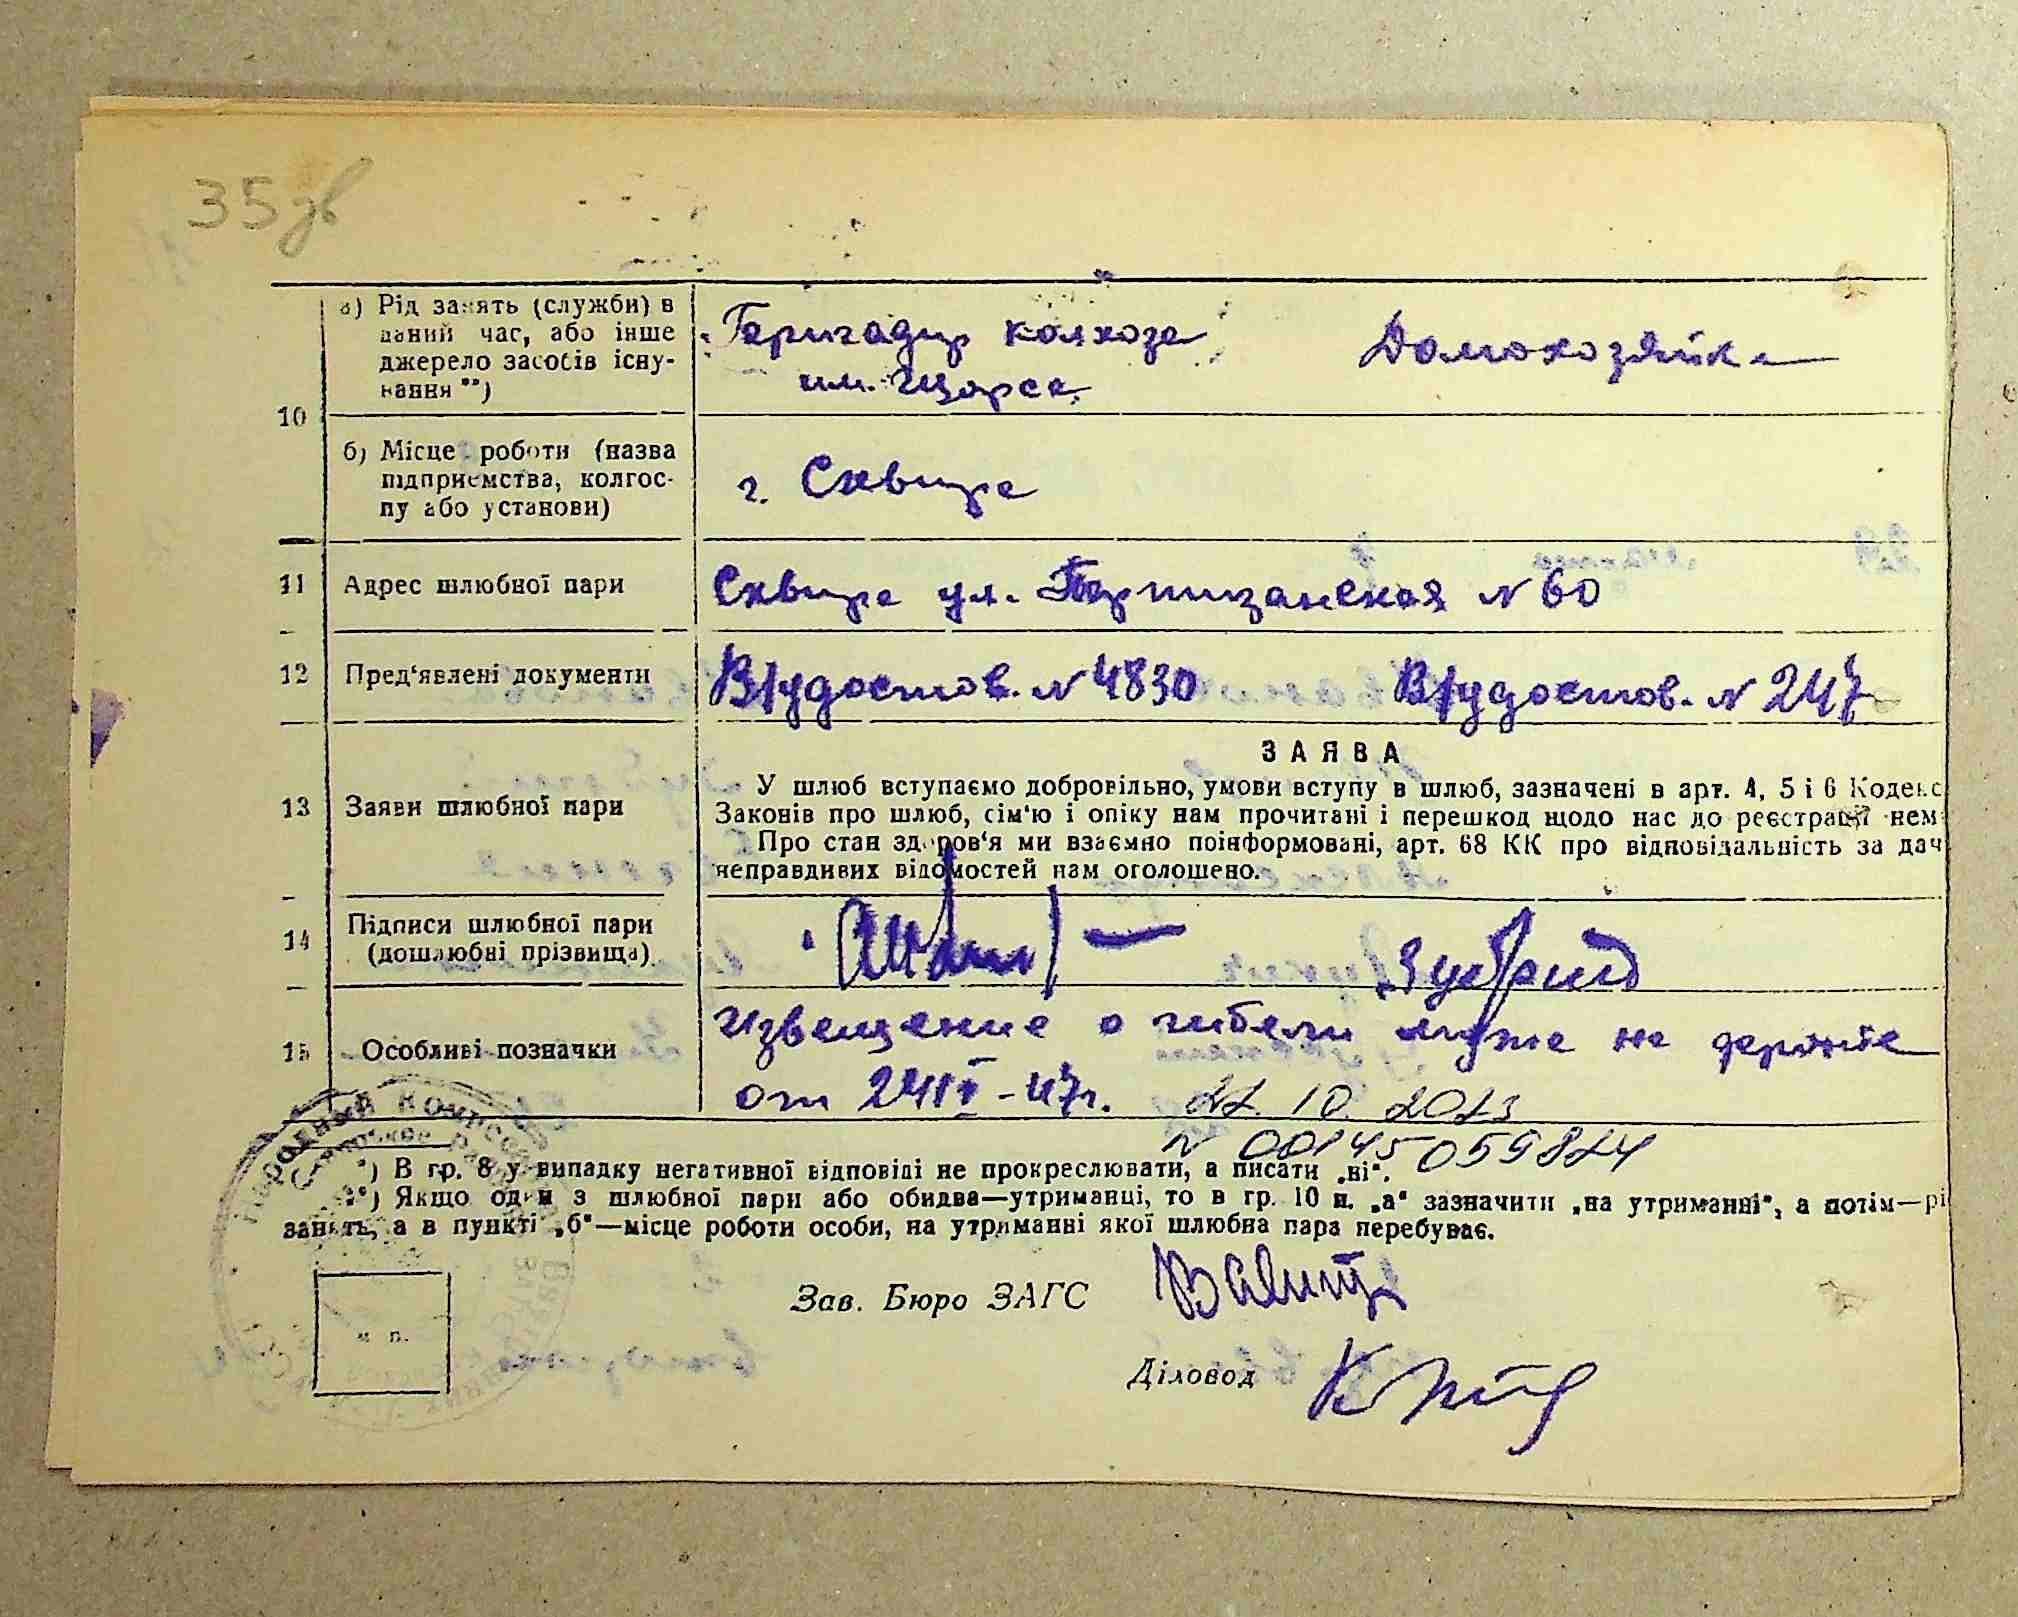 35 зв
10
а) Рід занять (служби) в
даний час, або інше
джерело засобів існу-
вання **)
Бригадир колхоза
им. Щорса
Домохозяйка
б) Місце роботи (назва
підприємства, колгос-
пу або установи)
г. Сквира
11 Адрес шлюбної пари
Сквира ул. Партизанская N 60
12 Пред'явлені документи
Вр/удостов. N 4830
Вр/удостов. N 247
13 Заяви шлюбної пари
ЗАЯВА
У шлюб вступаємо добровільно, умови вступу в шлюб, зазначені в арт. 4, 5 і 6 Кодекс
Законів про шлюб, сім'ю і опіку нам прочитані і перешкод щодо нас до реєстрації нем
Про стан здоров'я ми взаємно поінформовані, арт. 68 КК про відповідальність за дач
неправдивих відомостей нам оголошено.
14 Підписи шлюбної пари
(дошлюбні прізвища)
15 Особливі позначки
Извещение о гибели мужа на фронте
от
22.10.2013
N 00145059824
*) В гр. 8 у випадку негативної відповіді не прокреслювати, а писати „ні“.
**) Якщо один з шлюбної пари або обидва—утриманці, то в гр. 10 п. „а“ зазначити „на утриманні“, а потім—рі
занять, а в пункті „б“—місце роботи особи, на утриманні якої шлюбна пара перебуває.
Зав. Бюро ЗАГС
м п.
Діловод